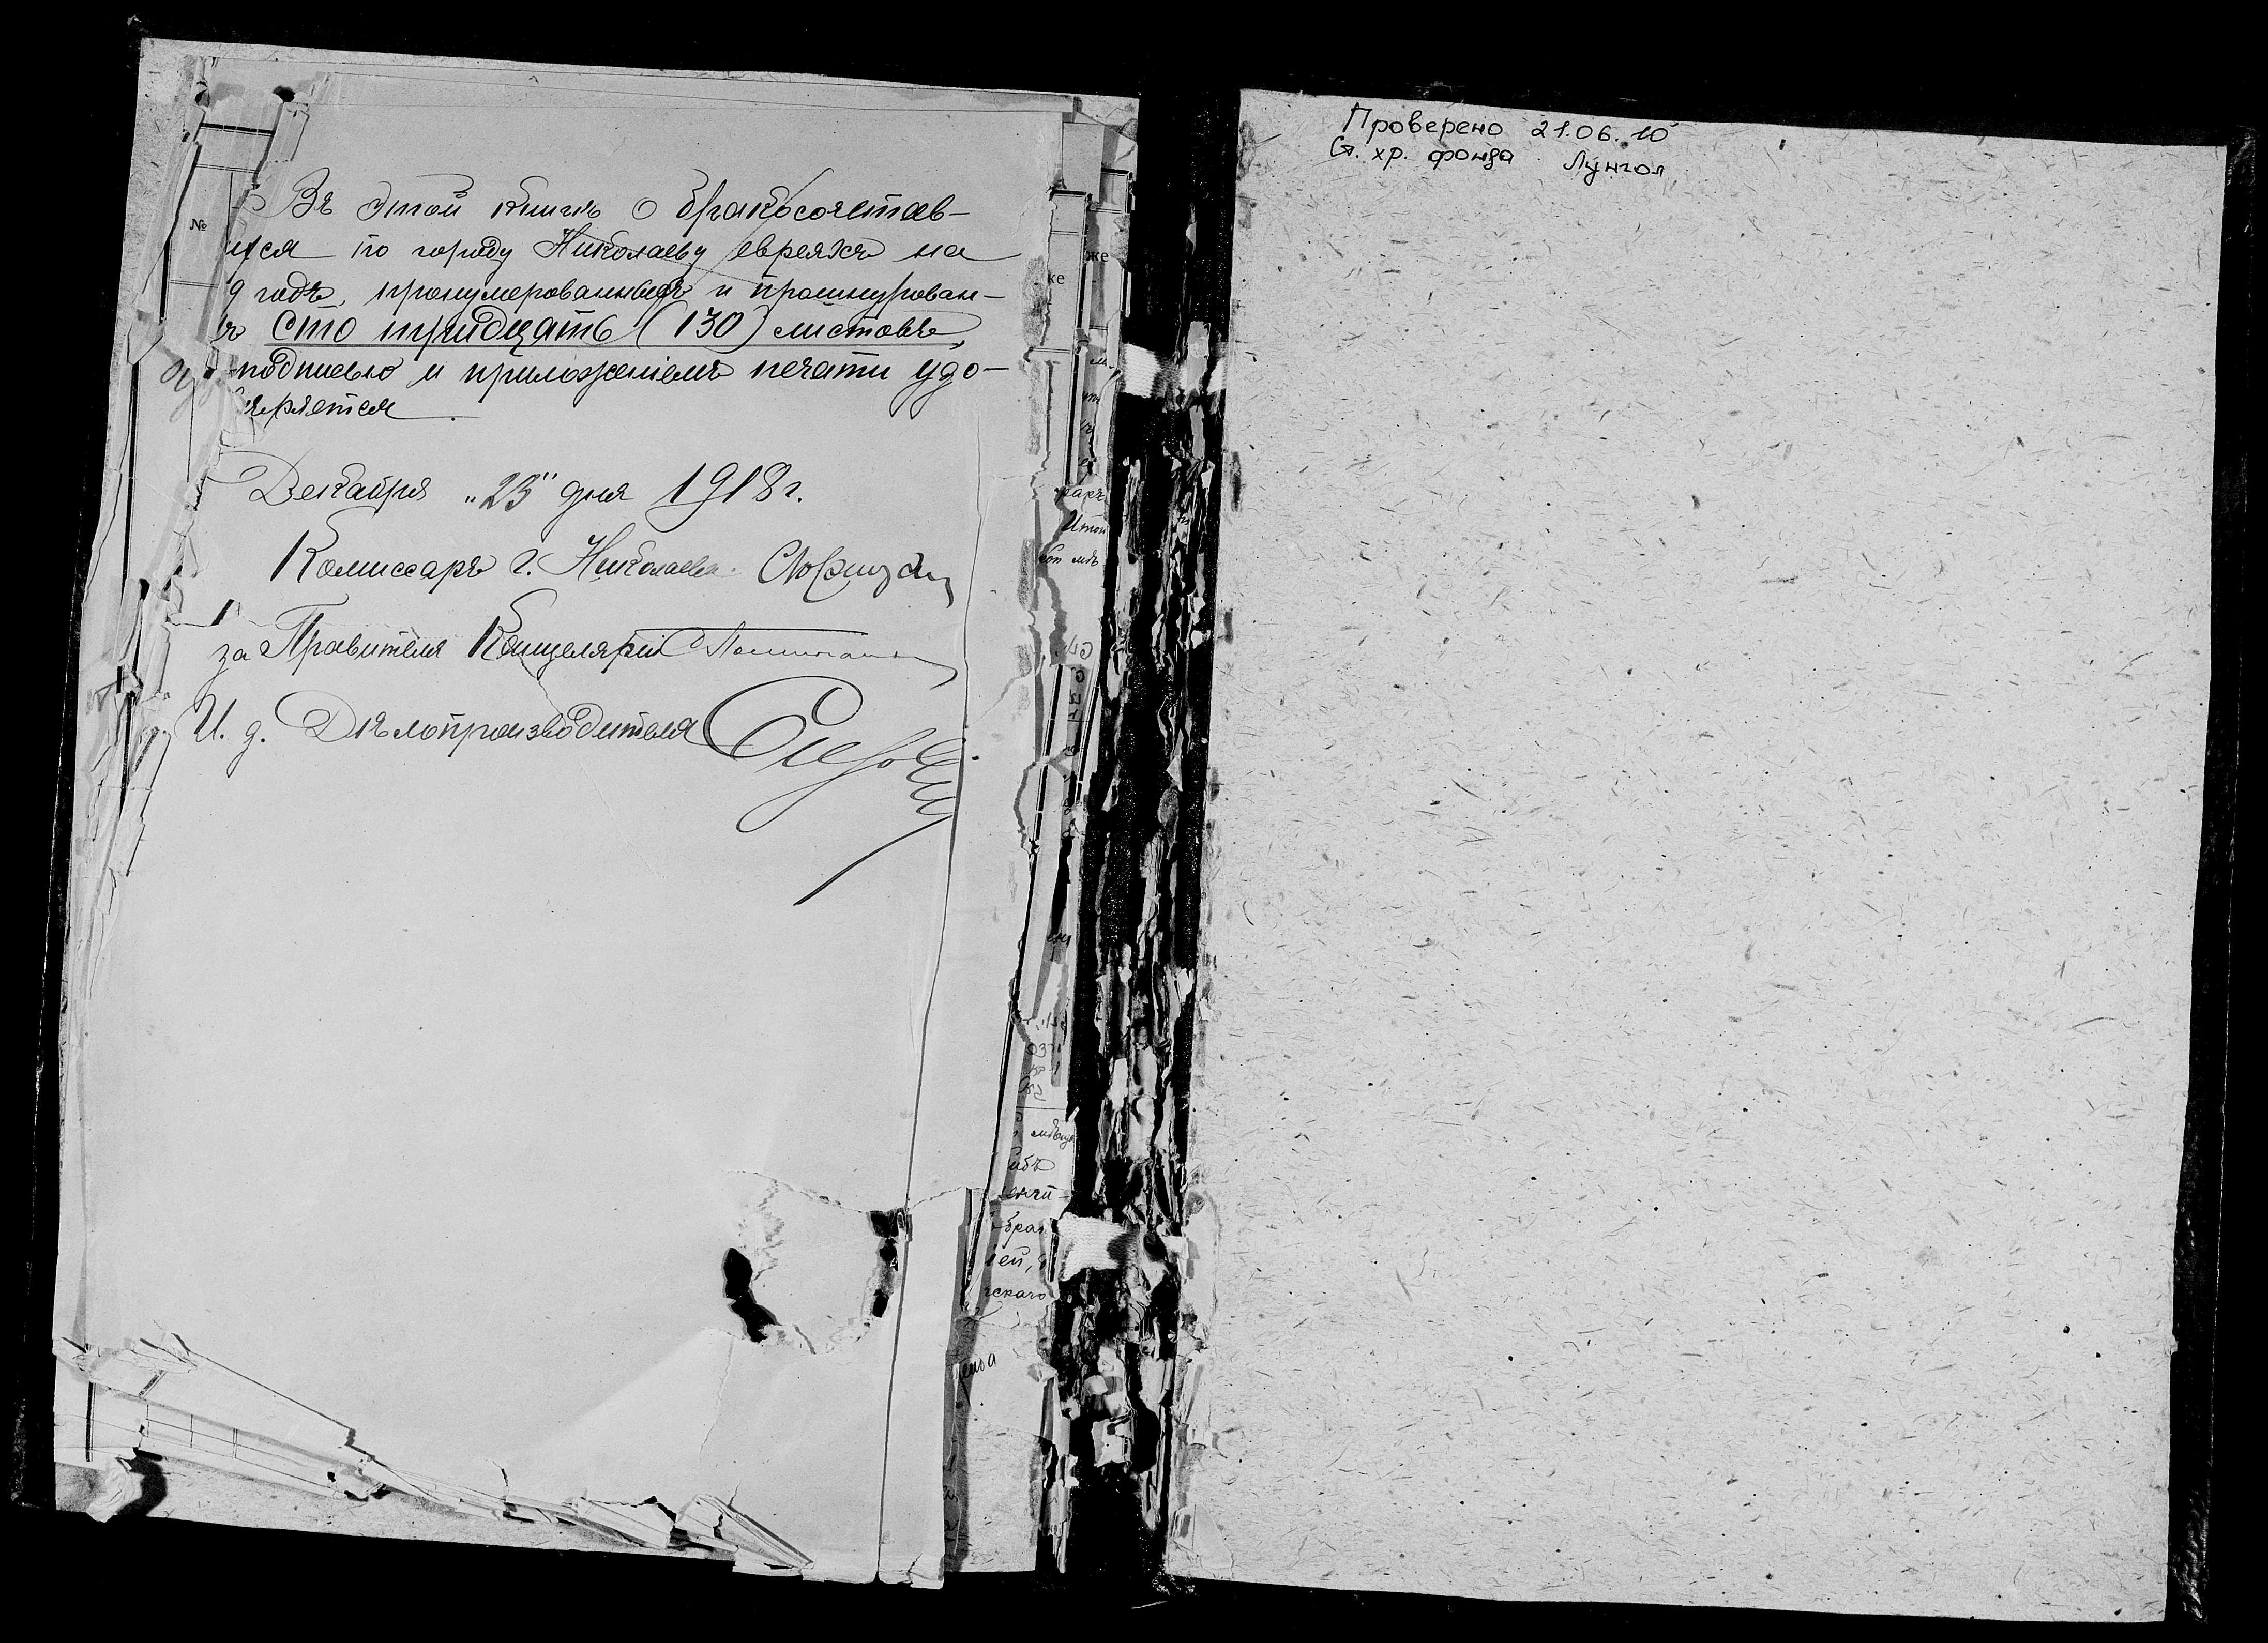 Въ этой книгѣ о бракосочетав-
ихся по городу Николаеву евреяхъ на
9 годъ, пронумерованныхъ и прошнурован-
ъ сто тридцать (130) листовъ,
подписью и приложеніемъ печати удо-
вѣряется.
Декабря „23" дня 1918 г.
Комиссаръ г. Николаева
за Правителя Канцеляріи
И. д. Дѣлопроизводителя
Проверено 21.06.10
Ст. хр. фонда Лунгол
№
же
ке